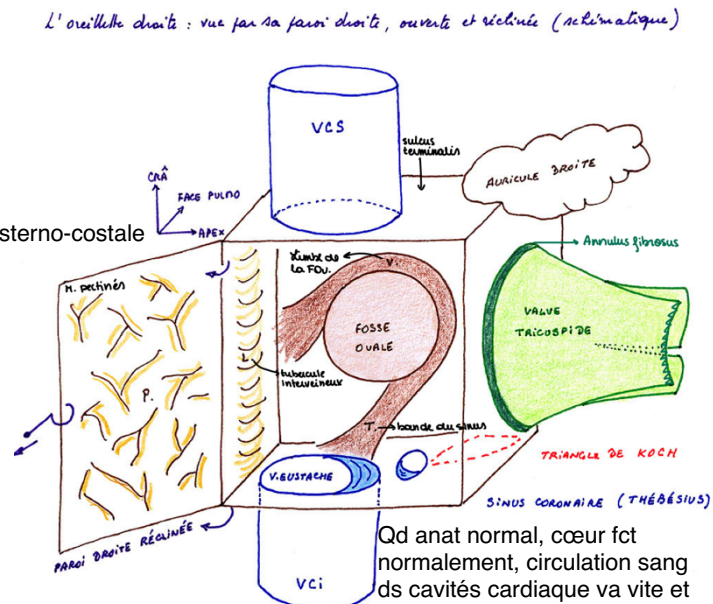 L'oreillette droite : vue par sa paroi droite, ouverte et réclinée (schématique)
VCS
sulcus
terminalis
AURICULE DROITE
CRÂ
FACE PULMO
APEX
sterno-costale
Annulus fibrosus
M. pectinés
Limbe de
la FOv.
V
FOSSE
OVALE
VALVE
TRICUSPIDE
L
tubercule
interveineux
P.
T.
bande du sinus
TRIANGLE DE KOCH
V.EUSTACHE
SINUS CORONAIRE (THÉBÉSIUS)
PAROI DROITE RÉCLINÉE
VCi
Qd anat normal, cœur fct
normalement, circulation sang
ds cavités cardiaque va vite et